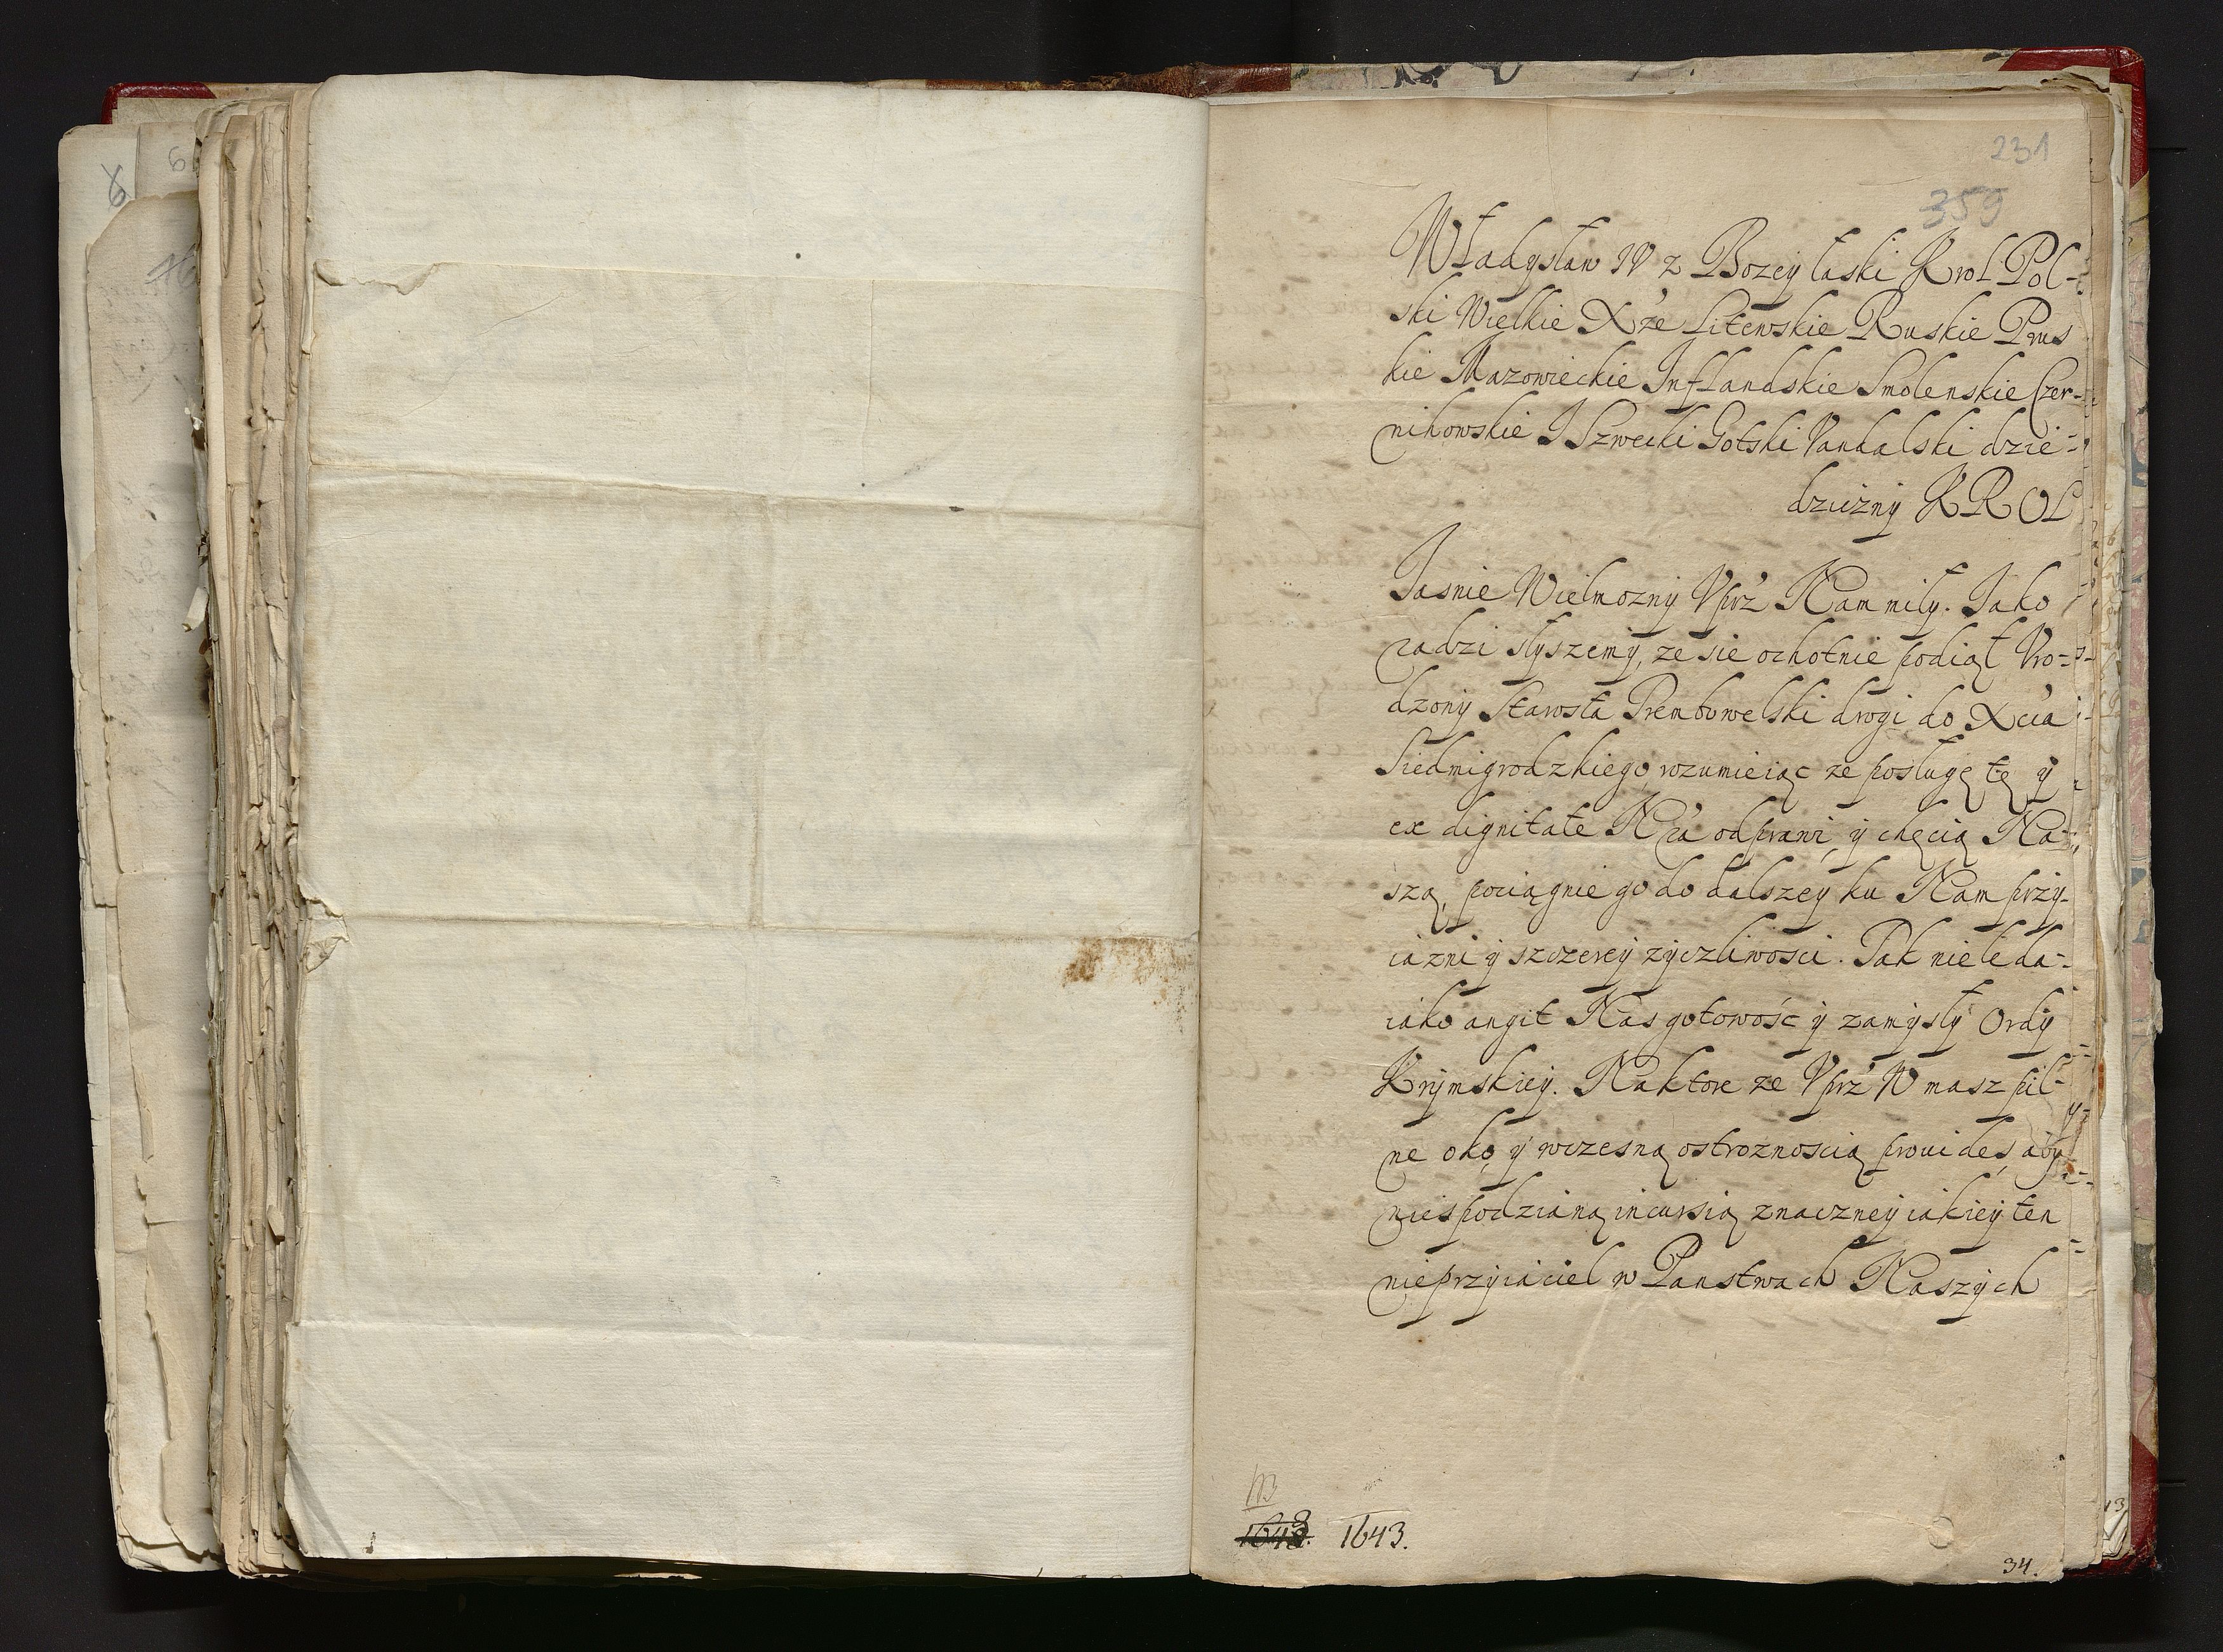 231
359
Władysław IV z Bozey łaski Krol Pol-
ski Wielkie Xże Litewskie Ruskie Prus
kie Mazowieckie Inflandskie Smolenskie Czer-
nihowskie I Szwecki Gotski Vandalski dzie-
dziczny KROL
Jasnie Wielmozny Vprz' Nam miły. Jako
radzi słyszemy, ze sie ochotnie podiął Vro-
dzony Starosta Trembowelski drogi do Xcia
Siedmigrodzkiego, rozumieiąc ze posługę tę y
ex dignitate Nra odprawi, y chęcią Na-
szą, pociągnie go do dalszey ku Nam przy-
iazni y szczerey zyczliwosci. Tak nieleda-
iako angit Nas gotowość y zamysły Ordy
Krymskiey. Na ktore ze Vprz' W masz pil-
ne oko, y wczesną ostroznoscią prouides, aby
niespodzianą incursią znaczney iakiey ten
nieprzyiaciel w Panstwach Naszych
1643.
34.